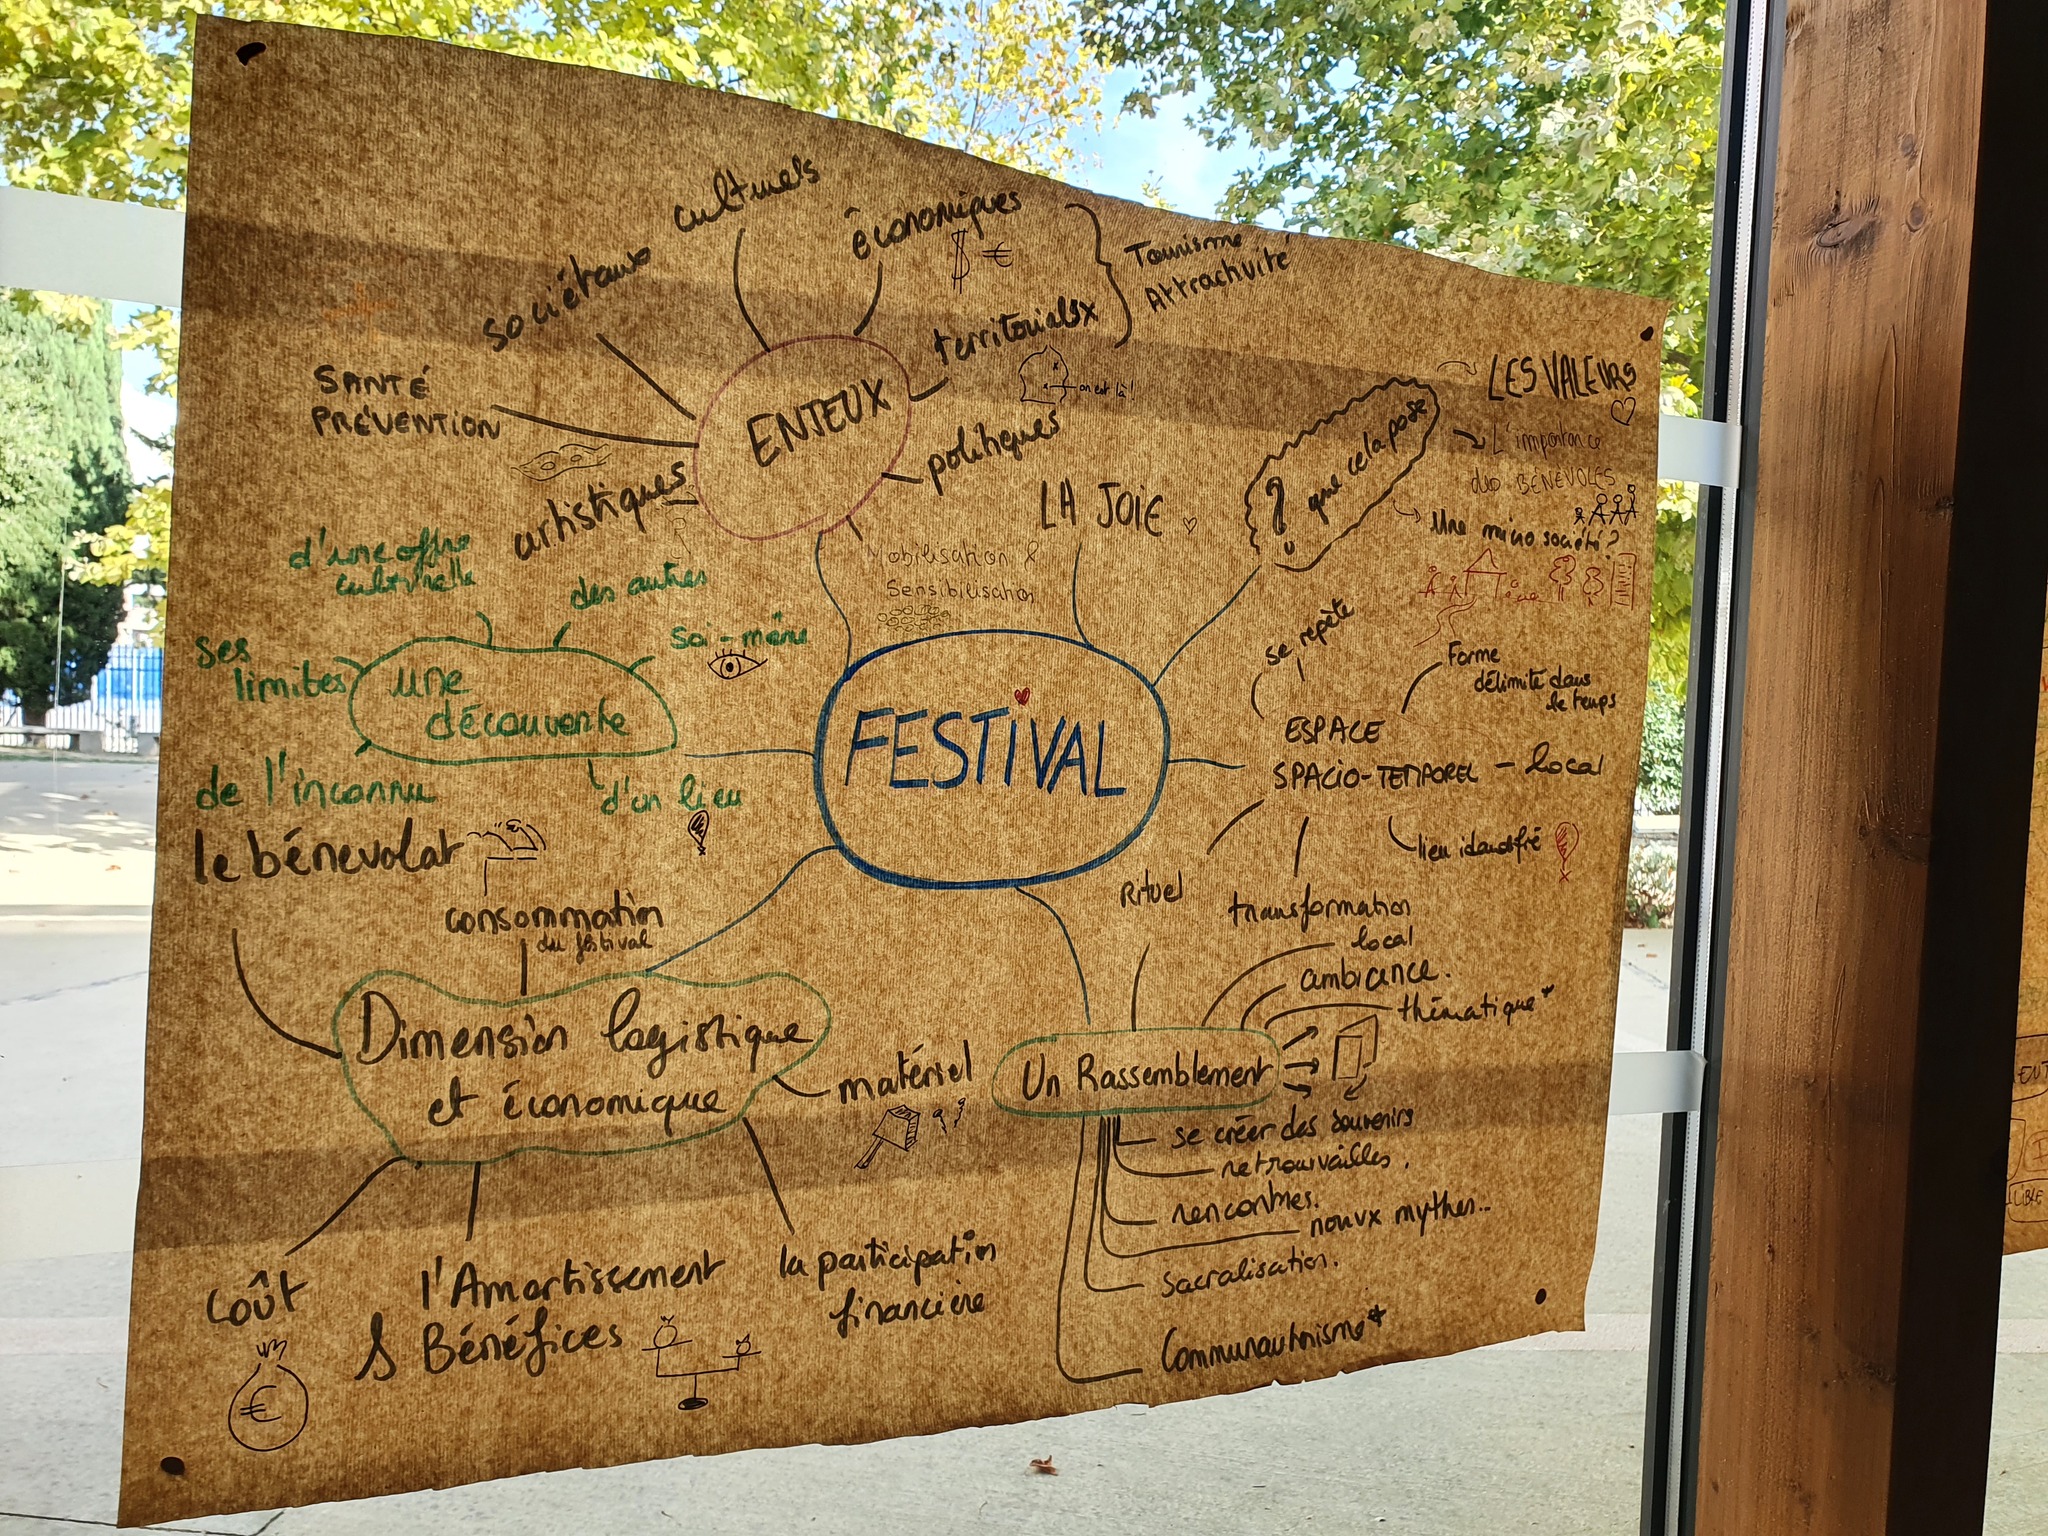 culturels
économiques
$ €
sociétaux
Tourisme
Attractivité
territorialsx
on est là !
SANTÉ
PRÉVENTION
ENJEUX
politiques
artistiques
Mobilisation &
Sensibilisation
LA JOIE
? que cela pose
LES VALEURS
L'importance
des BÉNÉVOLES
Une micro société?
d'une offre
culturelle
des autres
soi-même
ses
limites
une
découverte
de l'inconnu
d'un lieu
FESTIVAL
se repète
Forme
délimité dans
le temps
ESPACE
SPACIO-TEMPOREL - local
lieu identifié
Rituel
transformation
local
ambiance.
thématique*
le bénévolat
consommation
du festival
Dimension logistique
et économique
matériel
Un Rassemblement
se créer des souvenirs
retrouvailles.
rencontres.
nouvx mythes...
sacralisation.
Communautarisme*
Coût
€
l'Amortissement
& Bénéfices
la participation
financière